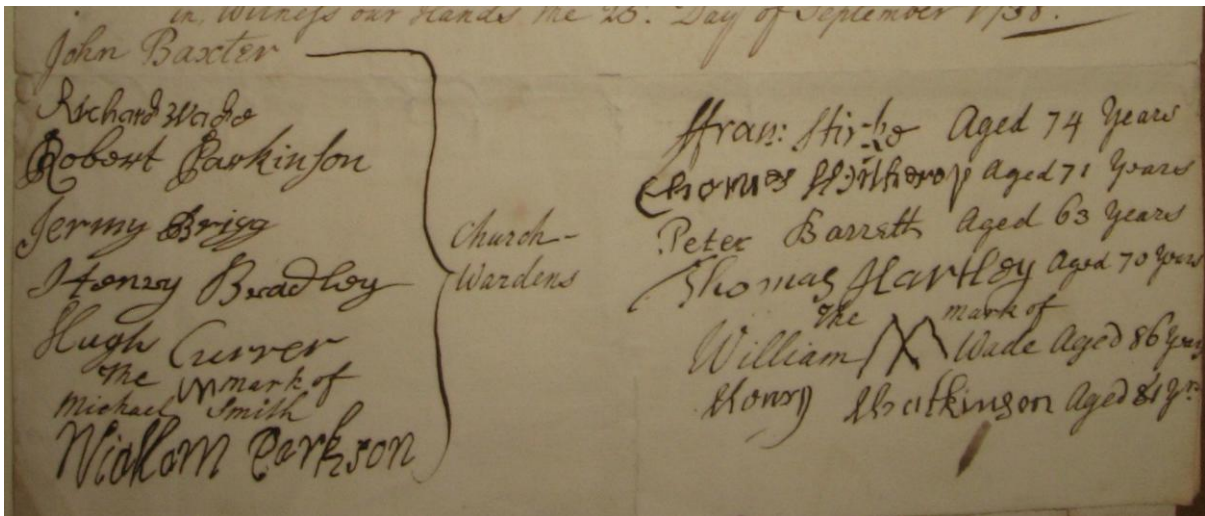 in Witness our Hands the 25. Day of September 1738.
John Baxter
Richard Wade
Robert Parkinson
Jermy Brigg
Henry Bradley
Hugh Currer
The mark of
Michael Smith
Church-
Wardens
ffran: Aged 74 Years
Thomas Aged 71 Years
Peter Barrett Aged 63 Years
Thomas Hartley Aged 70 Years
The mark of
William Wade Aged 86 Years
Henry Aged 81 Yrs